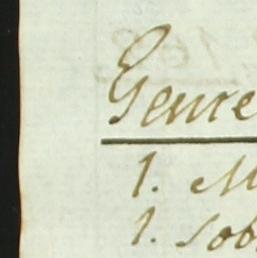 Genre
1. M
1. Sob